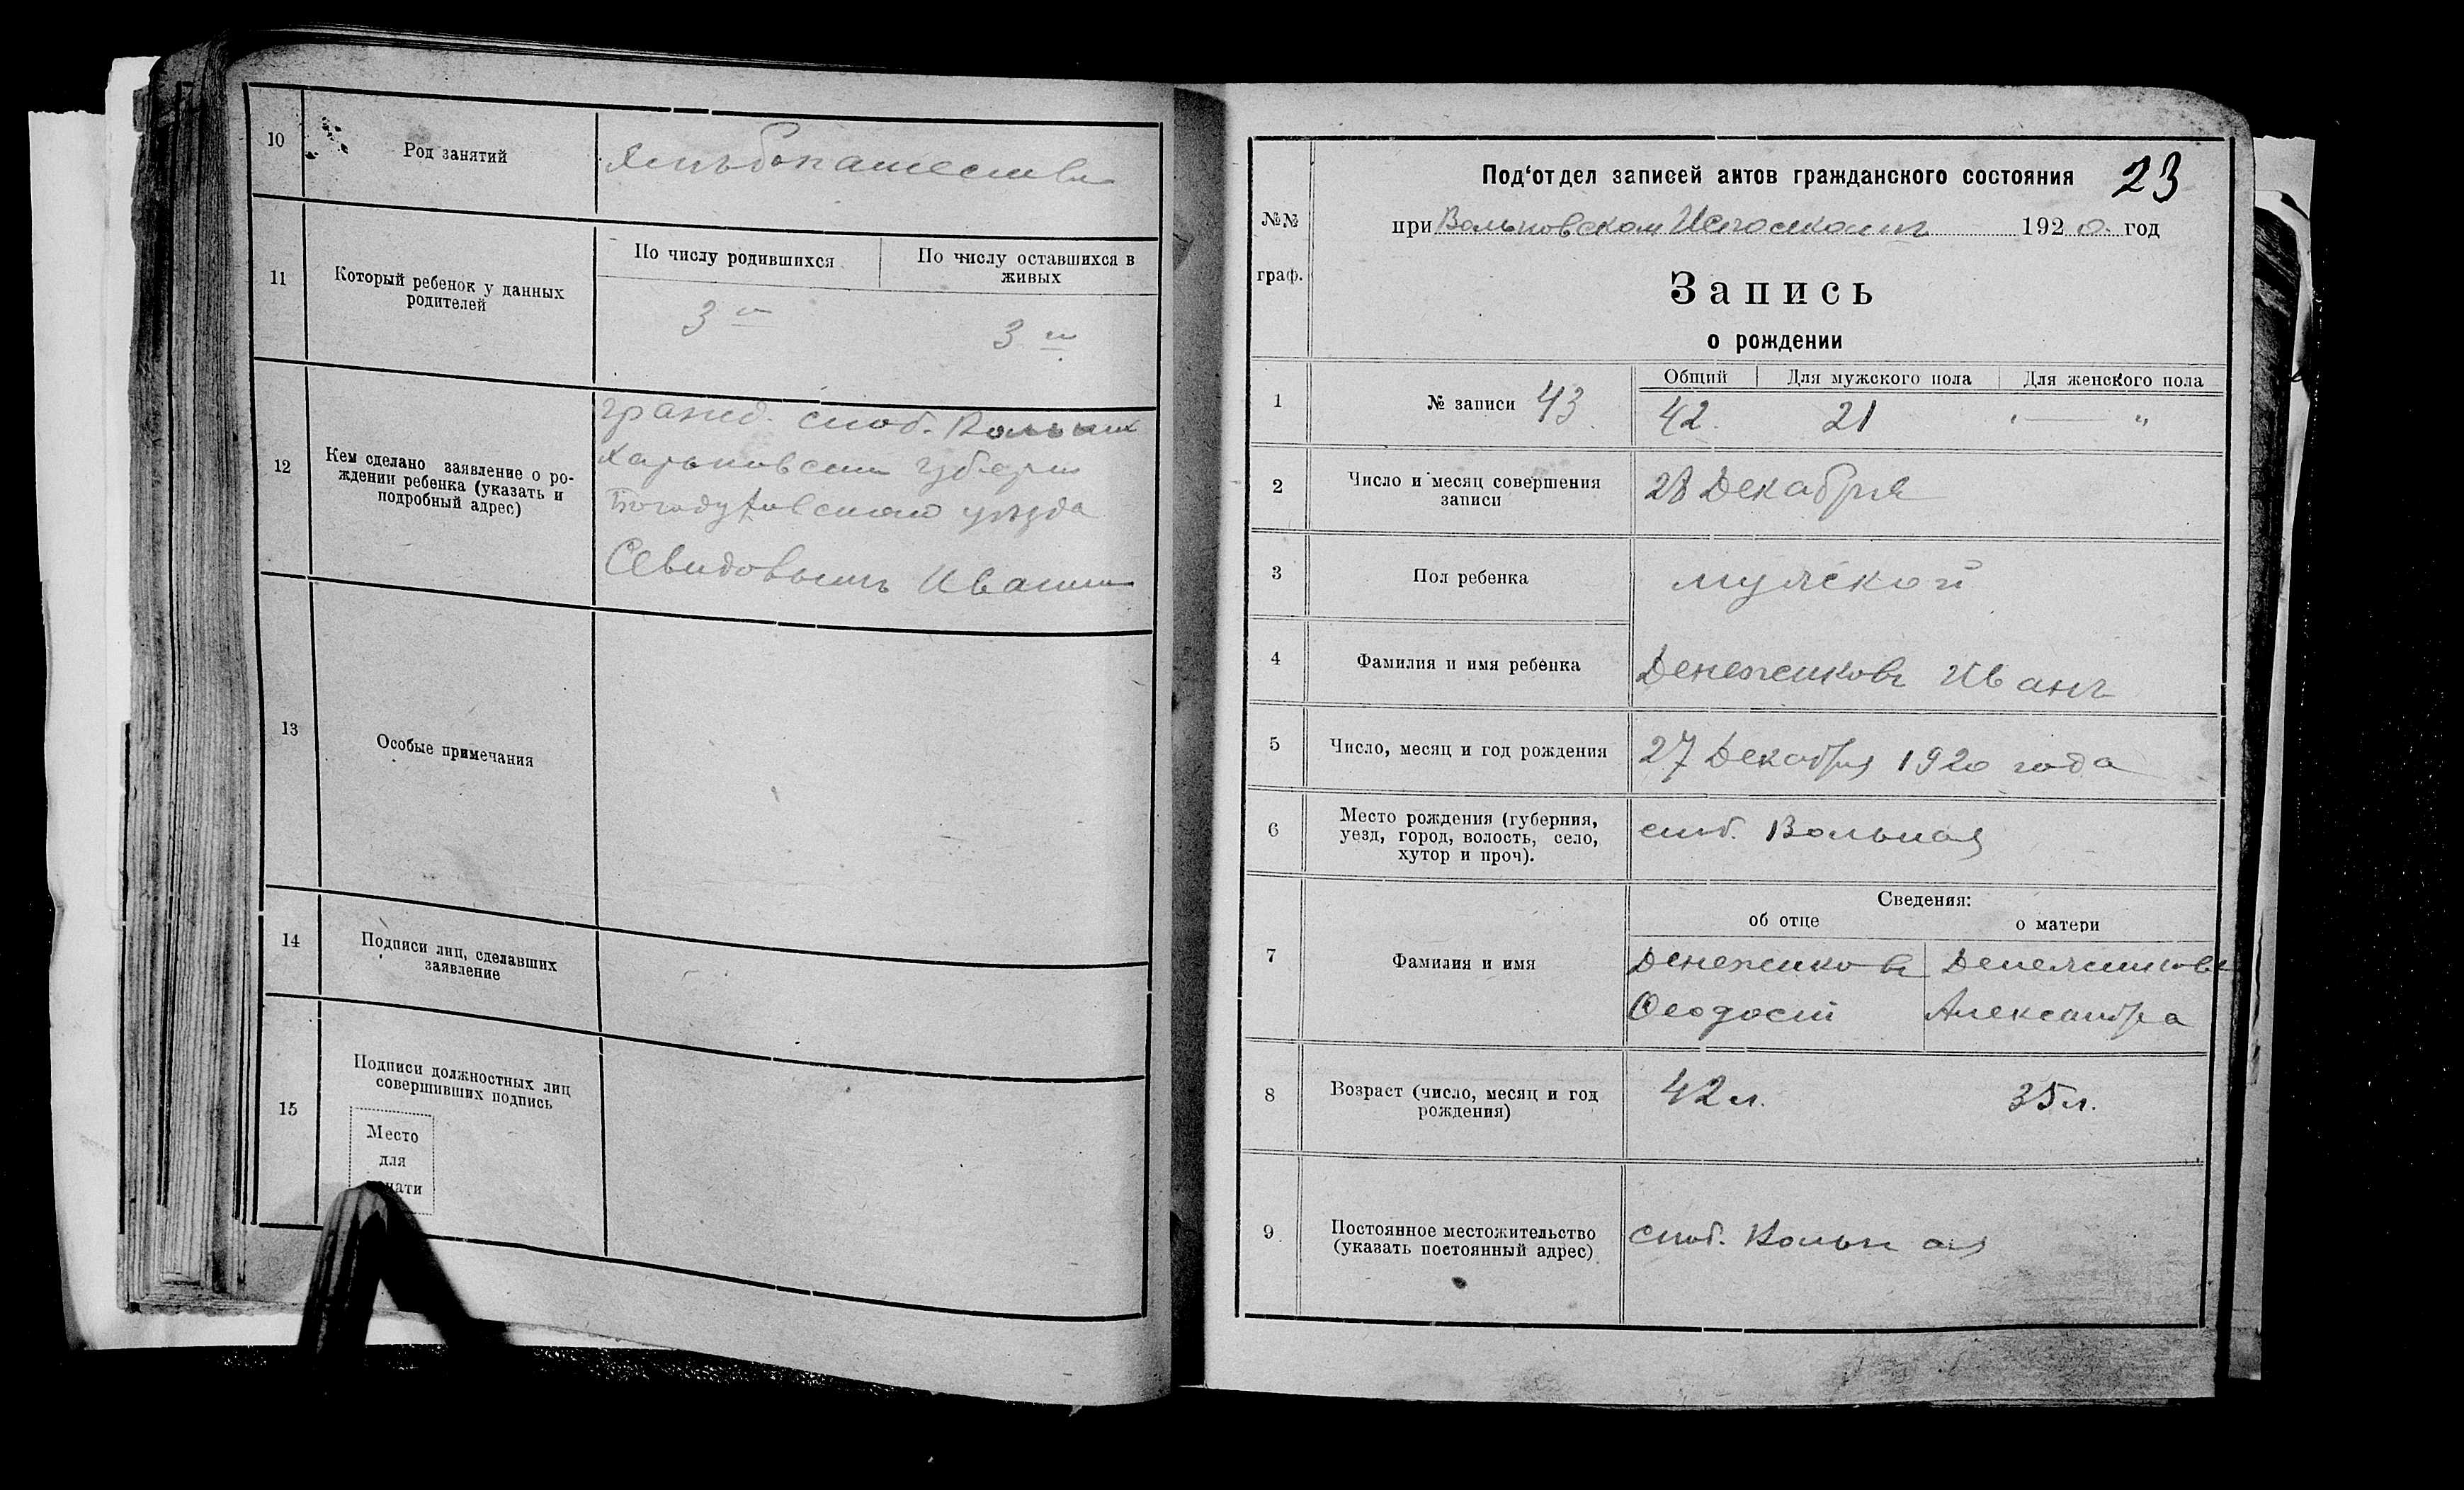 10
Род занятий
Хлѣбопашество
11
Который ребенок у данных
родителей
По числу родившихся
По числу оставшихся в
живых
3й
3й
12
Кем сделано заявление о ро-
ждении ребенка (указать и
подробный адрес)
гражд. слоб. Вольной
Харьковской губерни
Богодуховского уѣзда
Севидовымъ Иваном
13
Особые примечания
14
Подписи лиц, сделавших
заявление
15
Подписи должностных лиц
совершивших подпись
Место
для
23
Под‘отдел записей актов гражданского состояния
№№
граф.
при Вольновском Исполкоме 1920 год
Запись
о рождении
1
№ записи 43
Общий
Для мужского пола
Для женского пола
42.
21
" — "
2
Число и месяц совершения
записи
28 Декабря
3
Пол ребенка
мужской
4
Фамилия и имя ребенка
Денежниковъ Иванъ
5
Число, месяц и год рождения
27 Декабря 1920 года
6
Место рождения (губерния,
уезд, город, волость, село,
хутор и проч).
слоб. Вольная
Сведения:
об отце
о матери
7
Фамилия и имя
Денежниковъ
Феодосій
Денежникова
Александра
8
Возраст (число, месяц и год
рождения)
42 л.
35 л.
9
Постоянное местожительство
(указать постоянный адрес)
слоб. Вольная